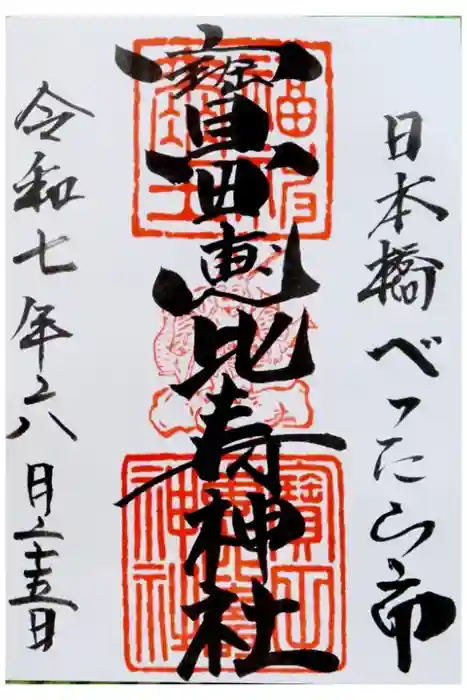 日本橋べったら市
寶田恵比寿神社
令和七年六月二十五日